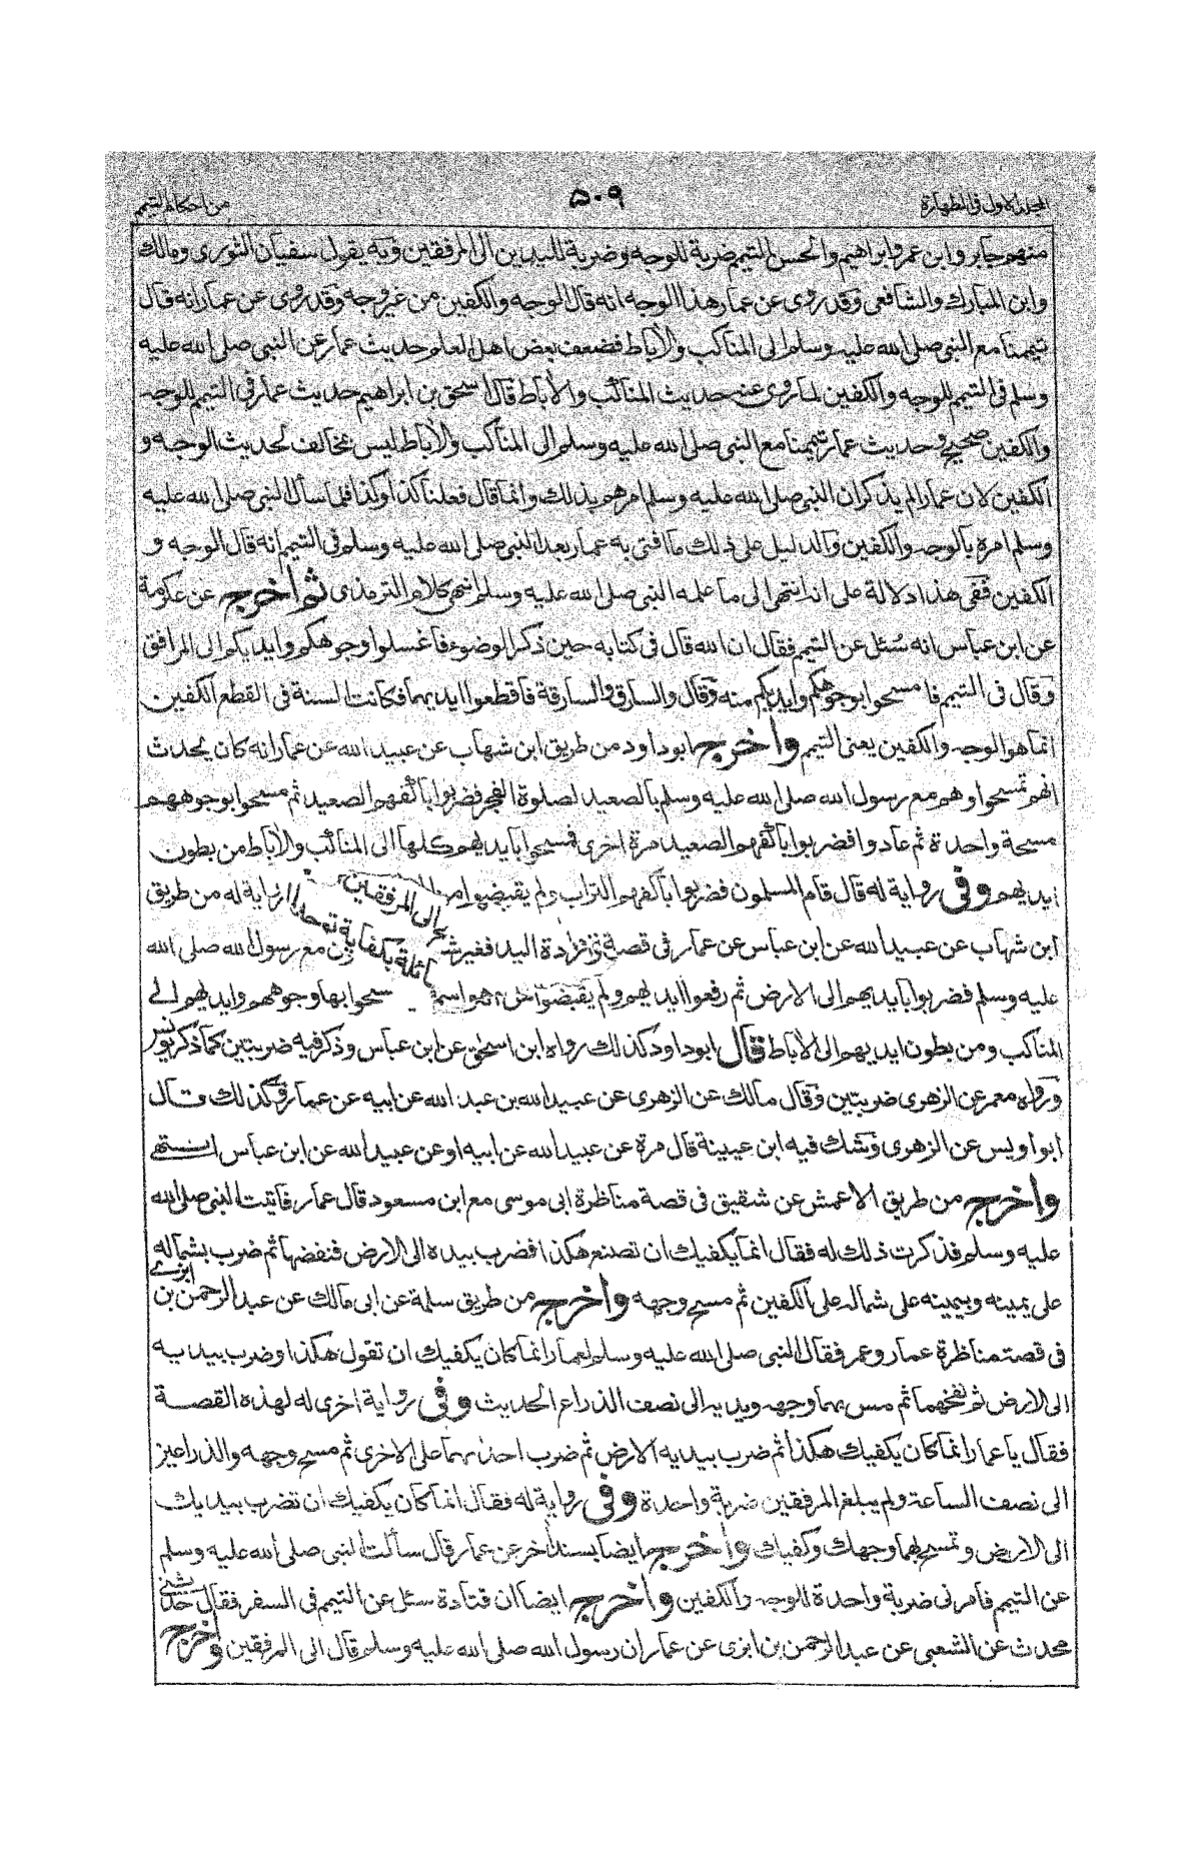 المجلد الاول فى الطهارة
۵۰۹
من احكام التيمم
منهم جابر وابن عمر وابراهيم والحسن التيمم ضربة للوجه وضربة لليدين الى المرفقين وبه يقول سفيان الثورى ومالك
وابن المبارك والشافعى وقد روى عن عمار هذا الوجه انه قال الوجه والكفين من غير وجه وقد روى عن عمار انه قال
تيممنا مع النبى صلى الله عليه وسلم الى المناكب والأباط فضعف بعض اهل العلم حديث عمار عن النبى صلى الله عليه
وسلم فى التيمم للوجه والكفين لما روى عنه حديث المناكب والأباط قال اسحق بن ابراهيم حديث عمار فى التيمم للوجه
والكفين صحيح وحديث عمار تيممنا مع النبى صلى الله عليه وسلم الى المناكب والأباط ليس بمخالف لحديث الوجه و
الكفين لان عمارا لم يذكر ان النبى صلى الله عليه وسلم امرهم بذلك وانما قال فعلنا كذا وكذا فلما سأل النبى صلى الله عليه
وسلم امره بالوجه والكفين والدليل على ذلك ما افتى به عمار بعد النبى صلى الله عليه وسلم فى التيمم انه قال الوجه و
الكفين ففى هذا دلالة على انه انتهى الى ما علمه النبى صلى الله عليه وسلم انتهى كلام الترمذى ثم اخرج عن عكرمة
عن ابن عباس انه سُئل عن التيمم فقال ان الله قال فى كتابه حين ذكر الوضوء فاغسلوا وجوهكم وايديكم الى المرافق
وقال فى التيمم فامسحوا بوجوهكم وايديكم منه وقال والسارق والسارقة فاقطعوا ايديهما فكانت السنة فى القطع الكفين
انما هو الوجه والكفين يعنى التيمم واخرج ابو داود من طريق ابن شهاب عن عبيد الله عن عمار انه كان يحدث
انهم تمسحوا وهم مع رسول الله صلى الله عليه وسلم بالصعيد لصلوة الفجر فضربوا باكفهم الصعيد ثم مسحوا بوجوههم
مسحة واحدة ثم عادوا فضربوا باكفهم الصعيد مرة اخرى فمسحوا بايديهم كلها الى المناكب والأباط من بطون
ايديهم وفى رواية له قال قام المسلمون فضربوا باكفهم التراب ولم يقبضوا من الى المرفقين رواية له من طريق
ابن شهاب عن عبيد الله عن ابن عباس عن عمار فى قصة مع رسول الله صلى الله
عليه وسلم فضربوا بايديهم الى الارض ثم رفعوا ايديهم ولم يقبضوا بها وجوههم وايديهم الى
المناكب ومن بطون ايديهم الى الأباط قال ابو داود كذلك رواه ابن اسحق عن ابن عباس وذكر فيه ضربتين كما ذكر يونس
ورواه معمر عن الزهرى ضربتين وقال مالك عن الزهرى عن عبيد الله بن عبد الله عن ابيه عن عمار وكذلك قال
ابو اويس عن الزهرى وشك فيه ابن عيينة قال مرة عن عبيد الله عن ابيه او عن عبيد الله عن ابن عباس انتهى
واخرج من طريق الاعمش عن شقيق فى قصة مناظرة ابى موسى مع ابن مسعود قال عمار فاتيت النبى صلى الله
عليه وسلم فذكرت ذلك له فقال انما يكفيك ان تصنع هكذا فضرب بيده الى الارض فنفضها ثم ضرب بشماله
على يمينه وبيمينه على شماله على الكفين ثم مسح وجهه واخرج من طريق سلمة عن ابى مالك عن عبد الرحمن بن ابزى
فى قصة مناظرة عمار وعمر فقال النبى صلى الله عليه وسلم لعمار انما كان يكفيك ان تقول هكذا وضرب بيديه
الى الارض ثم نفخهما ثم مس بهما وجهه ويديه الى نصف الذراع الحديث وفى رواية اخرى له لهذه القصة
فقال يا عمار انما كان يكفيك هكذا ثم ضرب بيديه الارض ثم ضرب احدٰىهما على الاخرى ثم مسح وجهه والذراعين
الى نصف الساعد ولم يبلغ المرفقين ضربة واحدة وفى رواية له فقال انما كان يكفيك ان تضرب بيديك
الى الارض وتمسح بهما وجهك وكفيك واخرج ايضا بسند اٰخر عن عمار قال سألت النبى صلى الله عليه وسلم
عن التيمم فامرنى ضربة واحدة للوجه والكفين واخرج ايضا ان قتادة سئل عن التيمم فى السفر فقال حدثنى
محدث عن الشعبى عن عبد الرحمن بن ابزى عن عمار ان رسول الله صلى الله عليه وسلم قال الى المرفقين واخرج